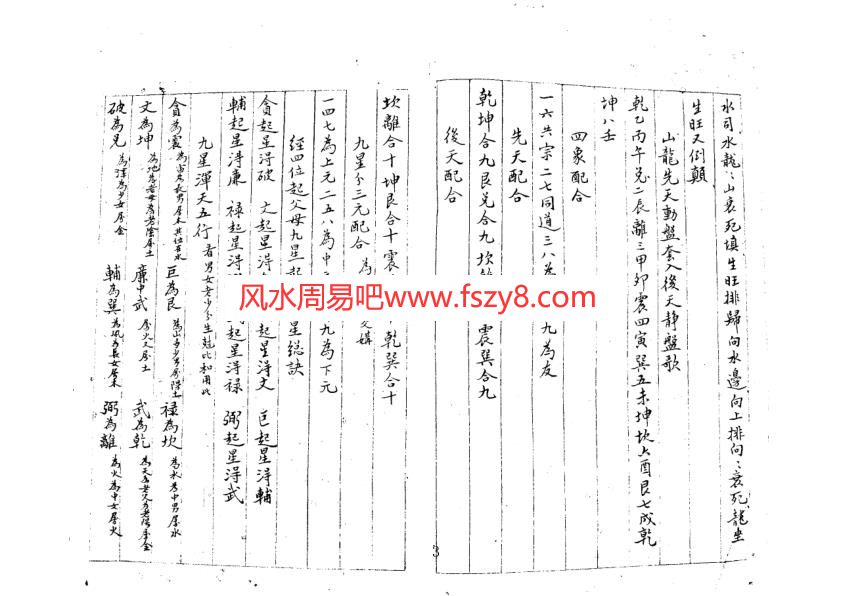 水司水龍:山衰死填生旺排歸向水邊向上排向:衰死龍坐
生旺又倒顛
山龍先天動盤套入後天靜盤歌
乾乙丙午兌二辰離三甲卯震四寅巽五未坤坎六酉艮七戌乾
坤八壬
四象配合
一六共宗二七同道三八為 九為友
先天配合
乾坤合九艮兌合九坎 震巽合九
後天配合
坎離合十坤艮合十震 乾巽合十
九星分三元配合
一四七為上元二五八為中 九為下元
經四位起父母九星起 星總訣
貪起星淂破 文起星淂 起星淂文 巨起星淂輔
輔起星淂廉 祿起星淂 起星淂祿 弼起星淂武
九星渾天五行 看男女老少分生尅比和用此
貪為震 為雷為長男屬木 巨為艮 為山為少男屬陽土 祿為坎 為水為中男屬水
文為坤 為地為老母為老陰屬土 廉中武 屬火又屬土 武為乾 為天為老父為老陽屬金
破為兌 為澤為少女屬金 輔為巽 為風為長女屬木 弼為離 為火為中女屬火
3
风水周易吧www.fszy8.com